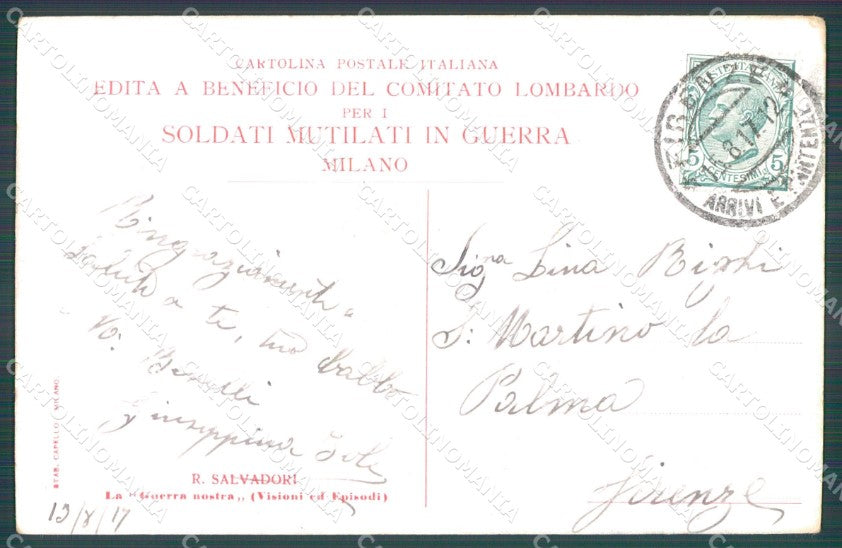 CARTOLINA POSTALE ITALIANA
EDITA A BENEFICIO DEL COMITATO LOMBARDO
PER I
SOLDATI MUTILATI IN GUERRA
MILANO
FIRENZE
8.17.12
ARRIVI E PARTENZE
5 5
CENTESIMI
Ringraziamenti e
saluti a te, tuo babbo
Giuseppina
Sig.na Lina Righi
S: Martino la
Palma
Firenze
STAB. CAPELLO. MILANO
R. SALVADORI
La "Guerra nostra,, (Visioni ed Episodi)
13/8/17
CARTOLINOMANIA